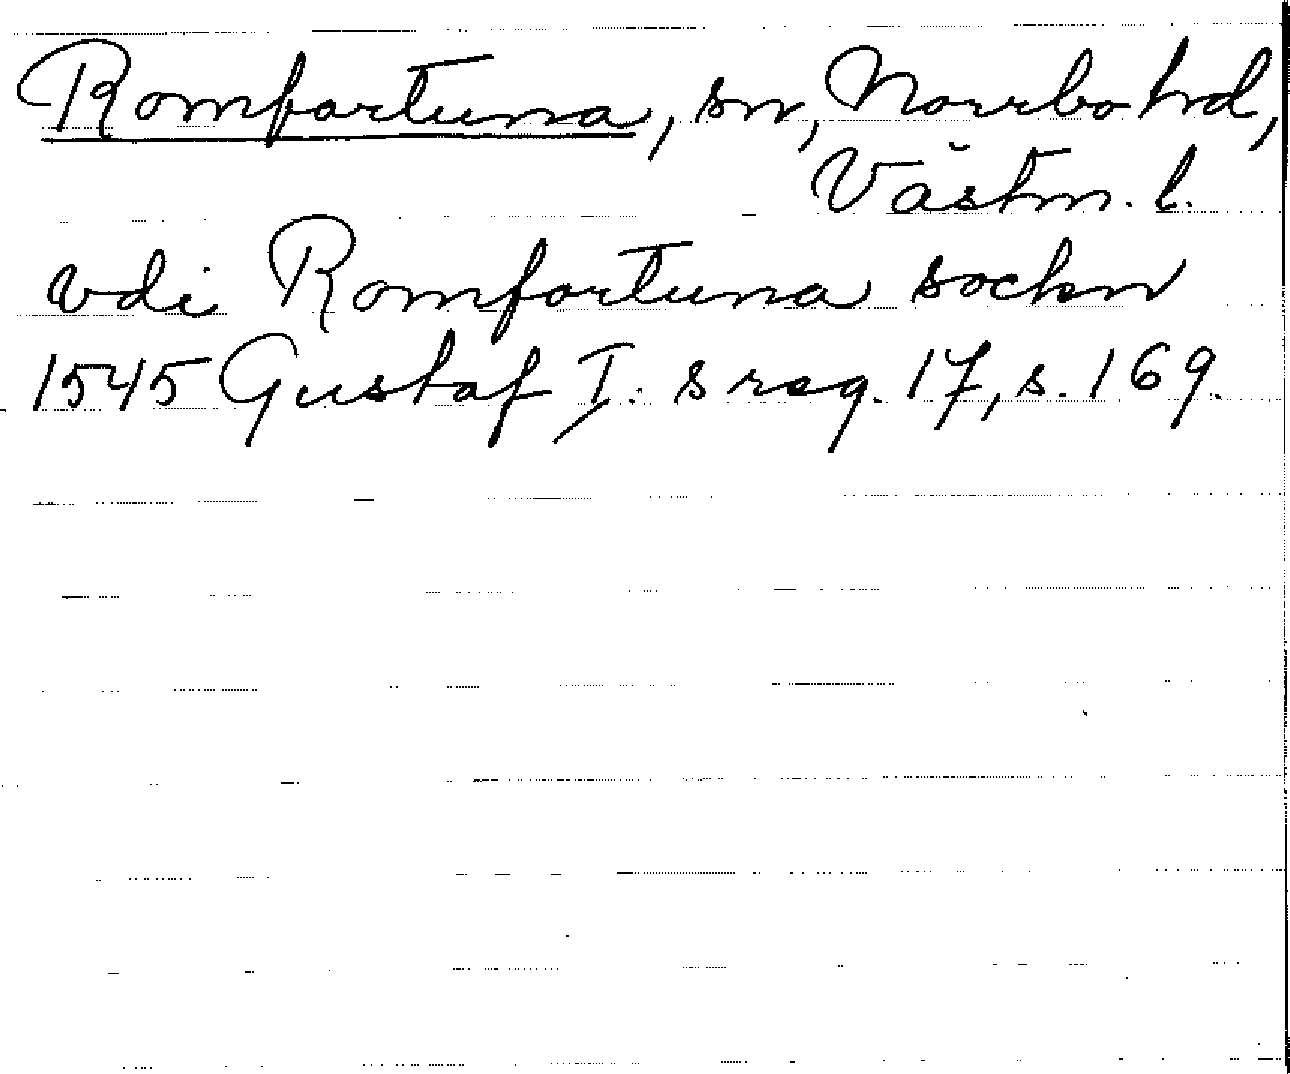 Romfartuna, sn, Norrbo hd,
Västm. l.
vdi Romfortuna sockn
1545 Gustaf I: s reg. 17, s. 169.